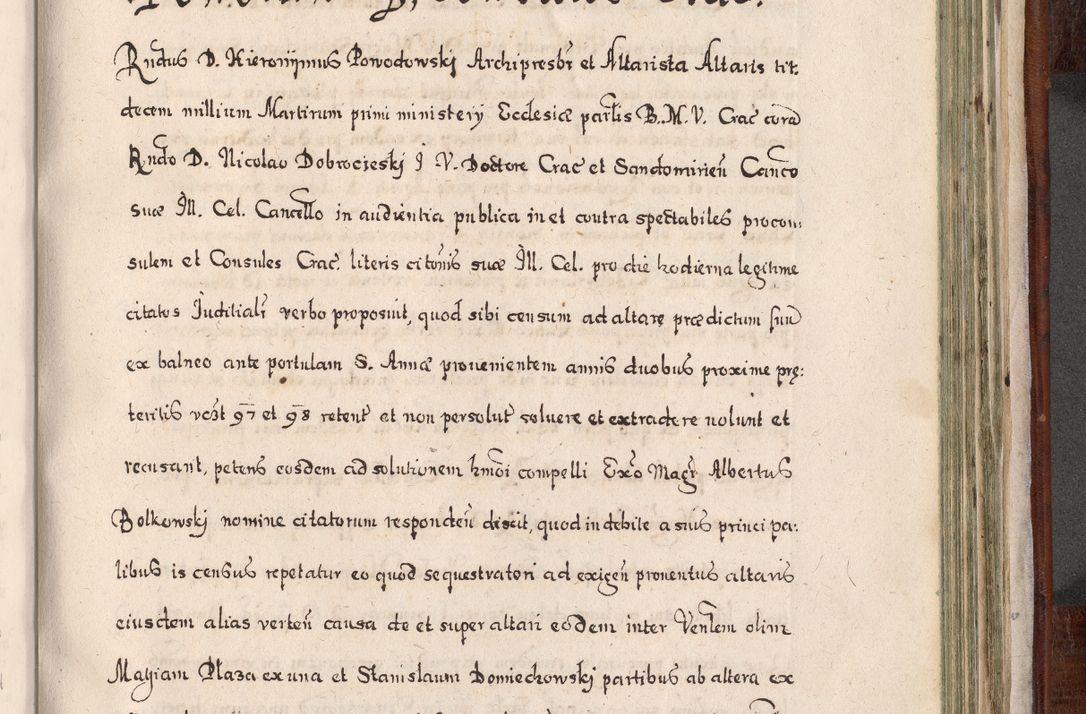 Rndus D. Hieronijmus Powodowskj Archipresbr et Altarista Altaris tit.
decem millium Martirum primi ministerij Ecclesiæ partlis B. M. V. Crac cora
Rndo D. Nicolao Dobrocieskj J V. Doctore Crac et Sandomirien Canco
suæ Ill. Cel. Cancello in audientia publica in et contra spectabiles procon:
sulem et Consules Crac. literis citonis suæ Ill. Cel. pro die hodierna legitime
citatos Juditialr verbo proposuit, quod sibi censum ad altare prædictum suu
ex balneo ante portulam S. Annæ provenientem annis duobus proxime prę:
teritis vczt 97 et 98 retent et non persolut solvere et extradere nolunt et
recusant, petens eosdem ad solutionem hmoi compelli Exo Magr Albertus
Bolkowskj nomine citatorum responden dixit, quod indebite a suis princi pa:
libus is census repetatur eo quod sequestratori ad exigen proventus altaris
eiusdem alias verten causa de et super altari eodem inter Venlem olim
Mayiam Płaza ex una et Stanislaum Domiechowskj partibus ab altera ex